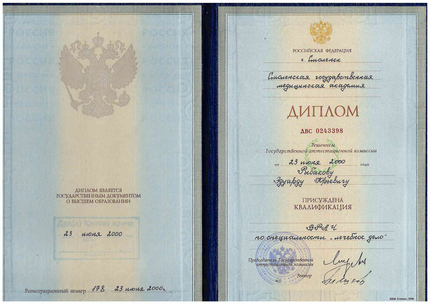 ДИПЛОМ ЯВЛЯЕТСЯ
ГОСУДАРСТВЕННЫМ ДОКУМЕНТОМ
О ВЫСШЕМ ОБРАЗОВАНИИ
23 июня 2000
Регистрационный номер 198 23 июня 2000г.
РОССИЙСКАЯ ФЕДЕРАЦИЯ
г. Смоленск
Смоленская государственная
медицинская академия
ДИПЛОМ
АВС 0243398
Решением
Государственной аттестационной комиссии
от 23 июня 2000 года
Рыбакову
Эдуарду Юрьевичу
ПРИСУЖДЕНА
КВАЛИФИКАЦИЯ
ВРАЧ
по специальности „лечебное дело"
Председатель Государственной
аттестационной комиссии
Ректор